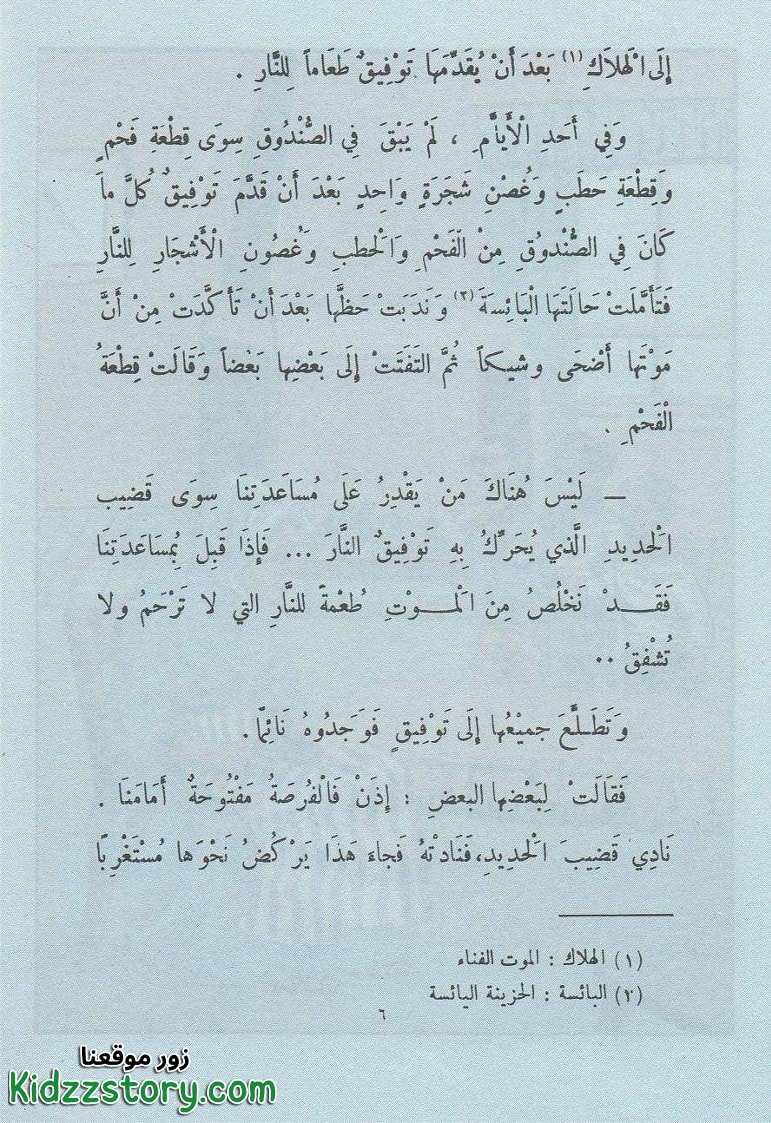 إِلَى الْهَلاَكِ (١) بَعْدَ أَنْ يُقَدِّمَهَا تَوْفِيقٌ طَعَاماً لِلنَّارِ .
وَفِي أَحَدِ الْأَيَّامِ ، لَمْ يَبْقَ فِي الصُّنْدُوقِ سِوَى قِطْعَةِ فَحْمٍ
وَقِطْعَةِ حَطَبٍ وَغُصْنِ شَجَرَةٍ وَاحِدٍ بَعْدَ أَنْ قَدَّمَ تَوْفِيقٌ كُلَّ مَا
كَانَ فِي الصُّنْدُوقِ مِنْ الْفَحْمِ وَالْحَطَبِ وَغُصُونِ الْأَشْجَارِ لِلنَّارِ
فَتَأَمَّلَتْ حَالَتَهَا الْبَائِسَةَ (٢) وَنَدَبَتْ حَظَّهَا بَعْدَ أَنْ تَأَكَّدَتْ مِنْ أَنَّ
مَوْتَهَا أَضْحَى وشيكاً ثُمَّ التَفَتَتْ إِلَى بَعْضِهَا بَعْضاً وَقَالَتْ قِطْعَةُ
الْفَحْمِ .
ــ لَيْسَ هُنَاكَ مَنْ يَقْدِرُ عَلَى مُسَاعَدَتِنَا سِوَى قَضِيب
الْحَدِيدِ الَّذي يُحَرِّكُ بِهِ تَوْفِيقٌ النَّارَ ... فَإِذَا قَبِلَ بِمُسَاعَدَتِنَا
فَقَـــدْ نَخْلُصُ مِنَ الْمَـــوْتِ طُعْمَةً للنَّارِ التي لا تَرْحَمُ ولا
تُشْفِقُ ..
وَتَطَلَّعَ جَمِيْعُها إِلَى تَوْفِيقٍ فَوَجَدُوهُ نَائِمًا .
فَقَالَتْ لِبَعْضِهِا البعضِ : إِذَنْ فَالْفُرصَةُ مَفْتُوحَةٌ أَمَامَنَا .
نَادِي قَضِيبَ الْحَدِيدِ، فَنَادَتْهُ فَجاءَ هَذَا يَرْكُضُ نَحْوَهَا مُسْتَغْرِبًا
(١) الهلاك : الموت الفناء
(٢) البائسة : الحزينة اليائسة
٦
زور موقعنا
Kidzzstory.com